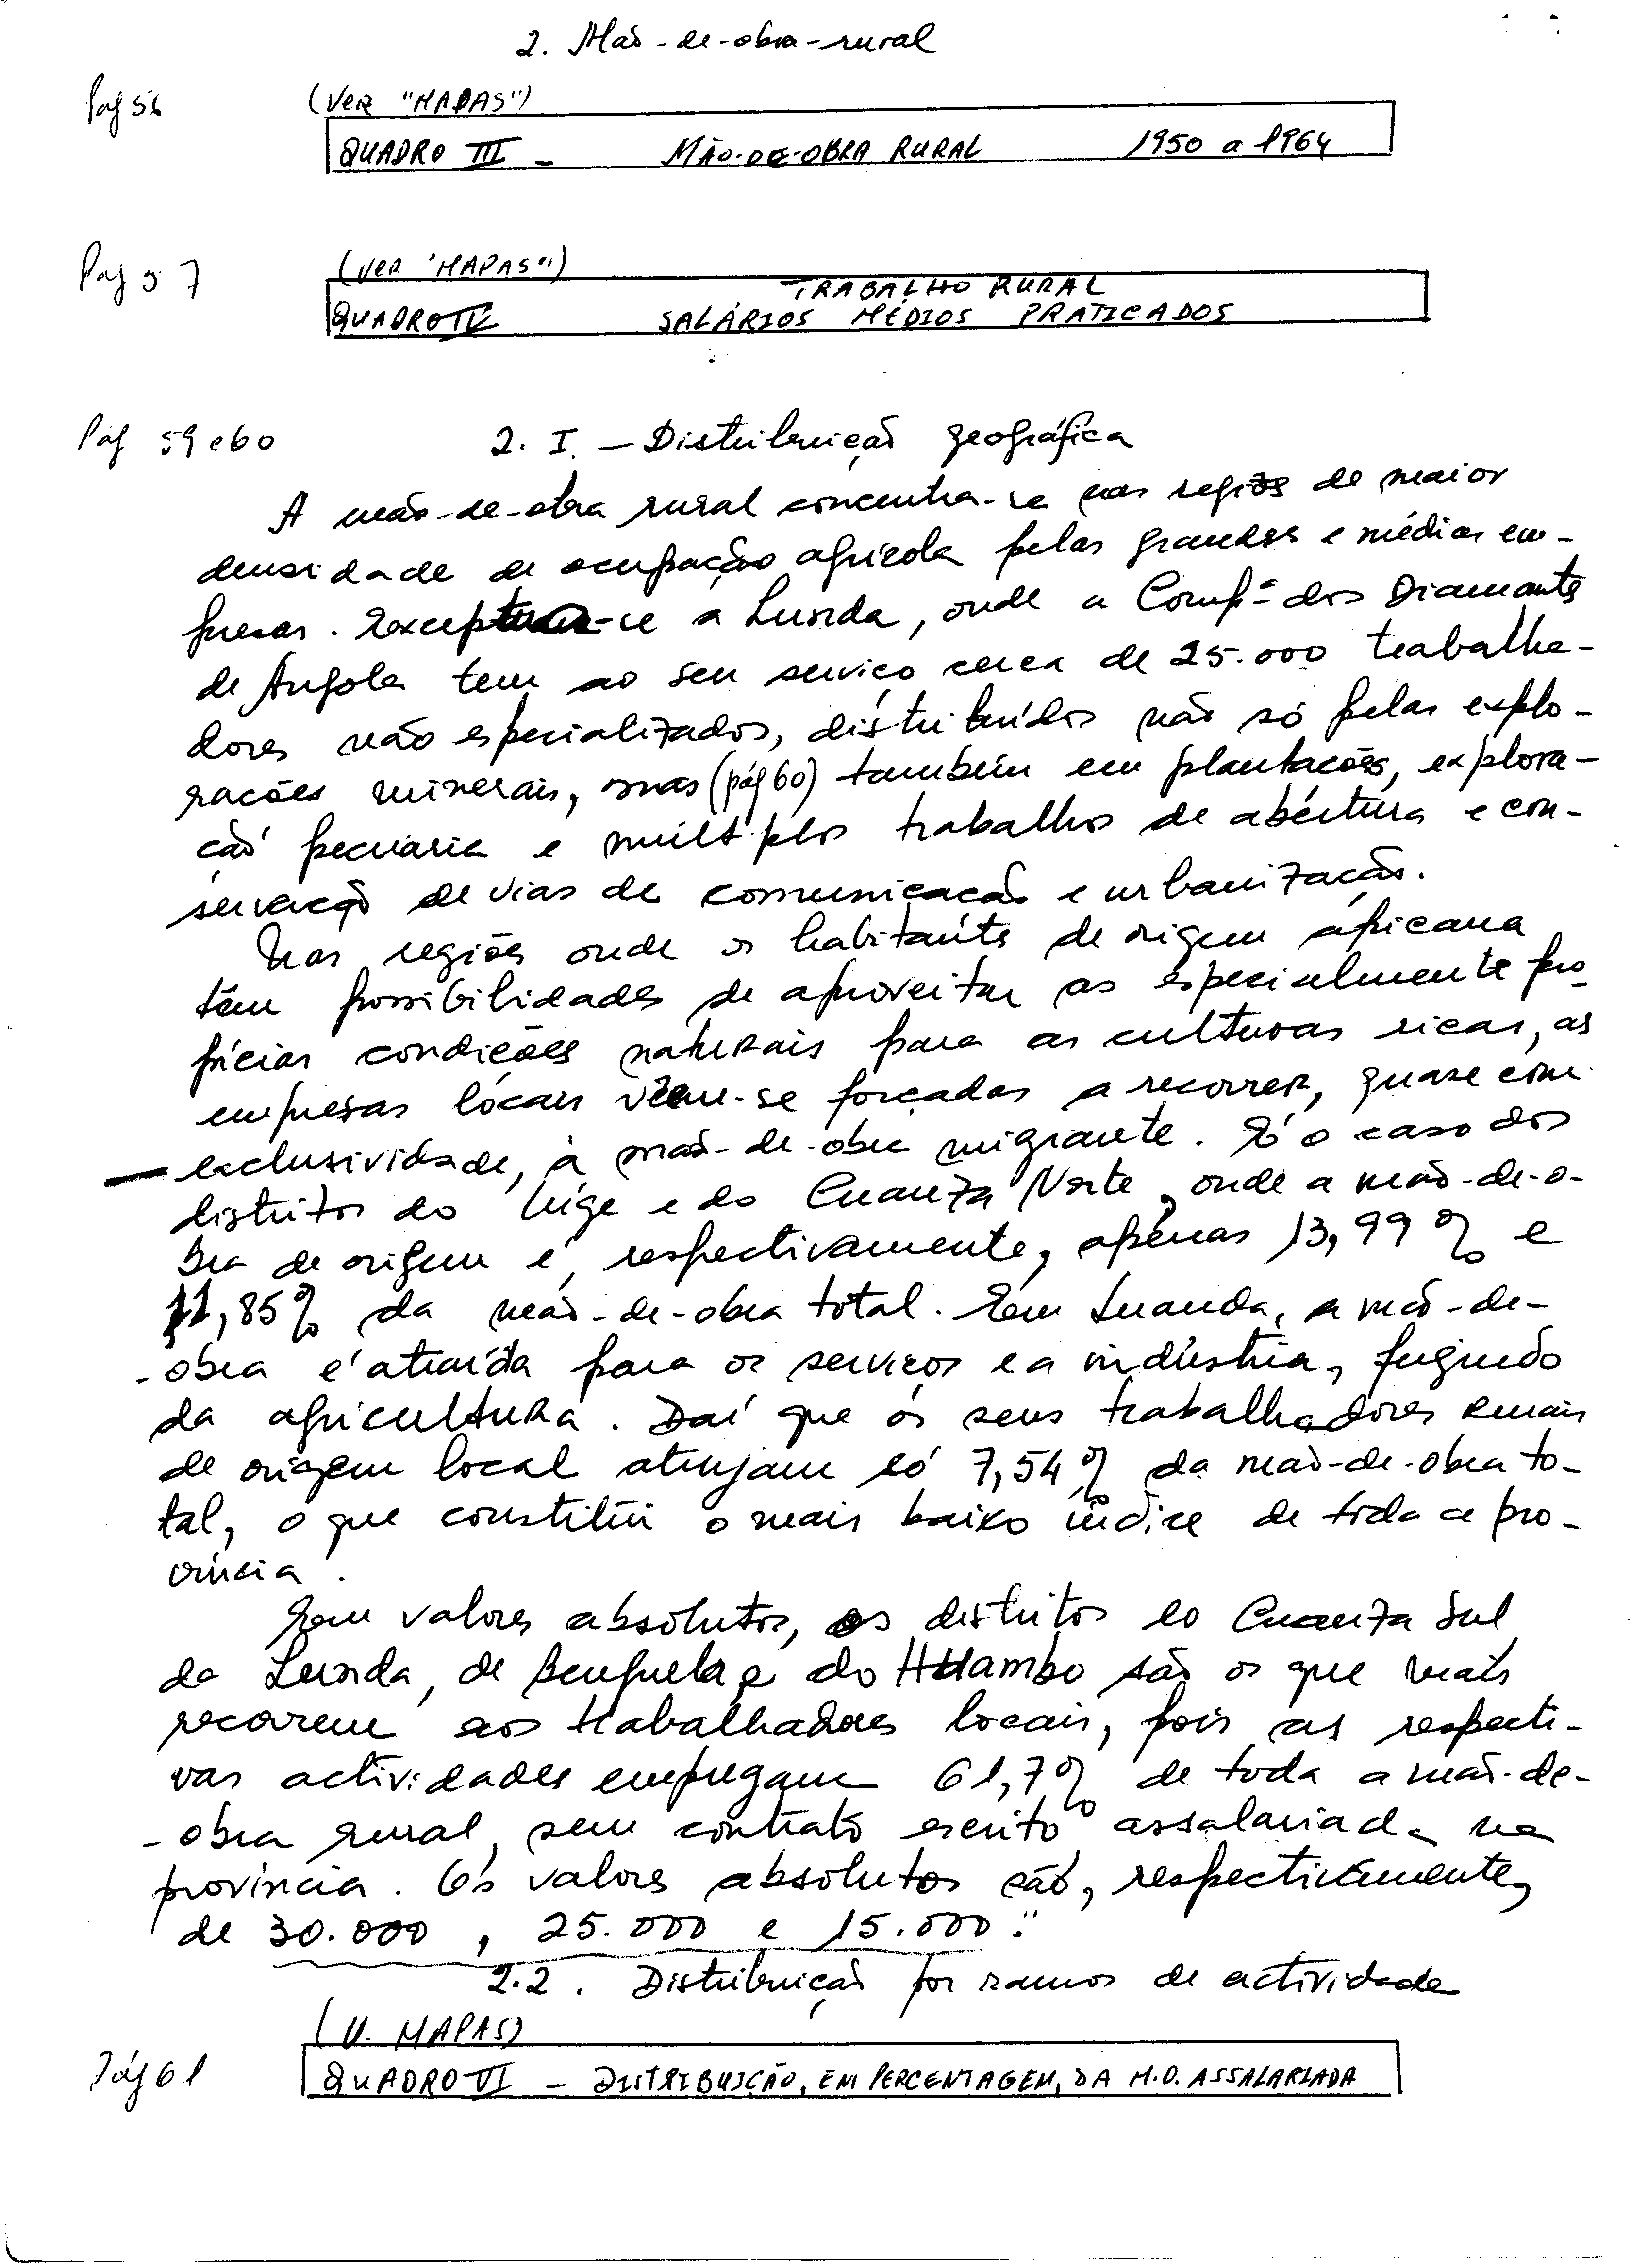 2. Mão-de-obra-rural
Pag 56
(VER "MAPAS")
QUADRO III - MÃO-DE-OBRA RURAL 1950 a 1964
Pag 57
(VER "MAPAS")
TRABALHO RURAL
QUADRO IV SALÁRIOS MÉDIOS PRATICADOS
Pág 59 e 60
2. I. - Distribuição geográfica
A mão-de-obra rural concentra-se nas regiões de maior
densidade de ocupação agrícola pelas grandes e médias em-
presas. Exceptua-se a Lunda, onde a Compª dos Diamantes
de Angola tem ao seu serviço cerca de 25.000 trabalha-
dores não especializados, distribuídos não só pelas explo-
rações minerais, mas (pág 60) também em plantações, explora-
ção pecuária e múltiplos trabalhos de abertura e con-
servação de vias de comunicação e urbanização.
Nas regiões onde os habitantes de origem africana
têm possibilidades de aproveitar as especialmente pro-
pícias condições naturais para as culturas ricas, as
empresas locais vêem-se forçadas a recorrer, quase com
exclusividade, à mão-de-obra migrante. É o caso dos
distritos do Uíge e do Cuanza Norte, onde a mão-de-o-
bra de origem é, respectivamente, apenas 13,99% e
11,85% da mão-de-obra total. Em Luanda, a mão-de-
-obra é atraída para os serviços e a indústria, fugindo
da agricultura. Daí que os seus trabalhadores rurais
de origem local atinjam só 7,54% da mão-de-obra to-
tal, o que constitui o mais baixo índice de toda a pro-
víncia.
Em valores absolutos, os distritos do Cuanza Sul
da Lunda, de Benguela e do Huambo são os que mais
recorrem aos trabalhadores locais, pois as respecti-
vas actividades empregam 61,7% de toda a mão-de-
-obra rural, sem contrato escrito assalariada na
província. Os valores absolutos são, respectivamente,
de 30.000, 25.000 e 15.000."
2.2. Distribuição por ramos de actividade
(V. MAPAS)
Pág 61
QUADRO VI - DISTRIBUIÇÃO, EM PERCENTAGEM, DA M.O. ASSALARIADA